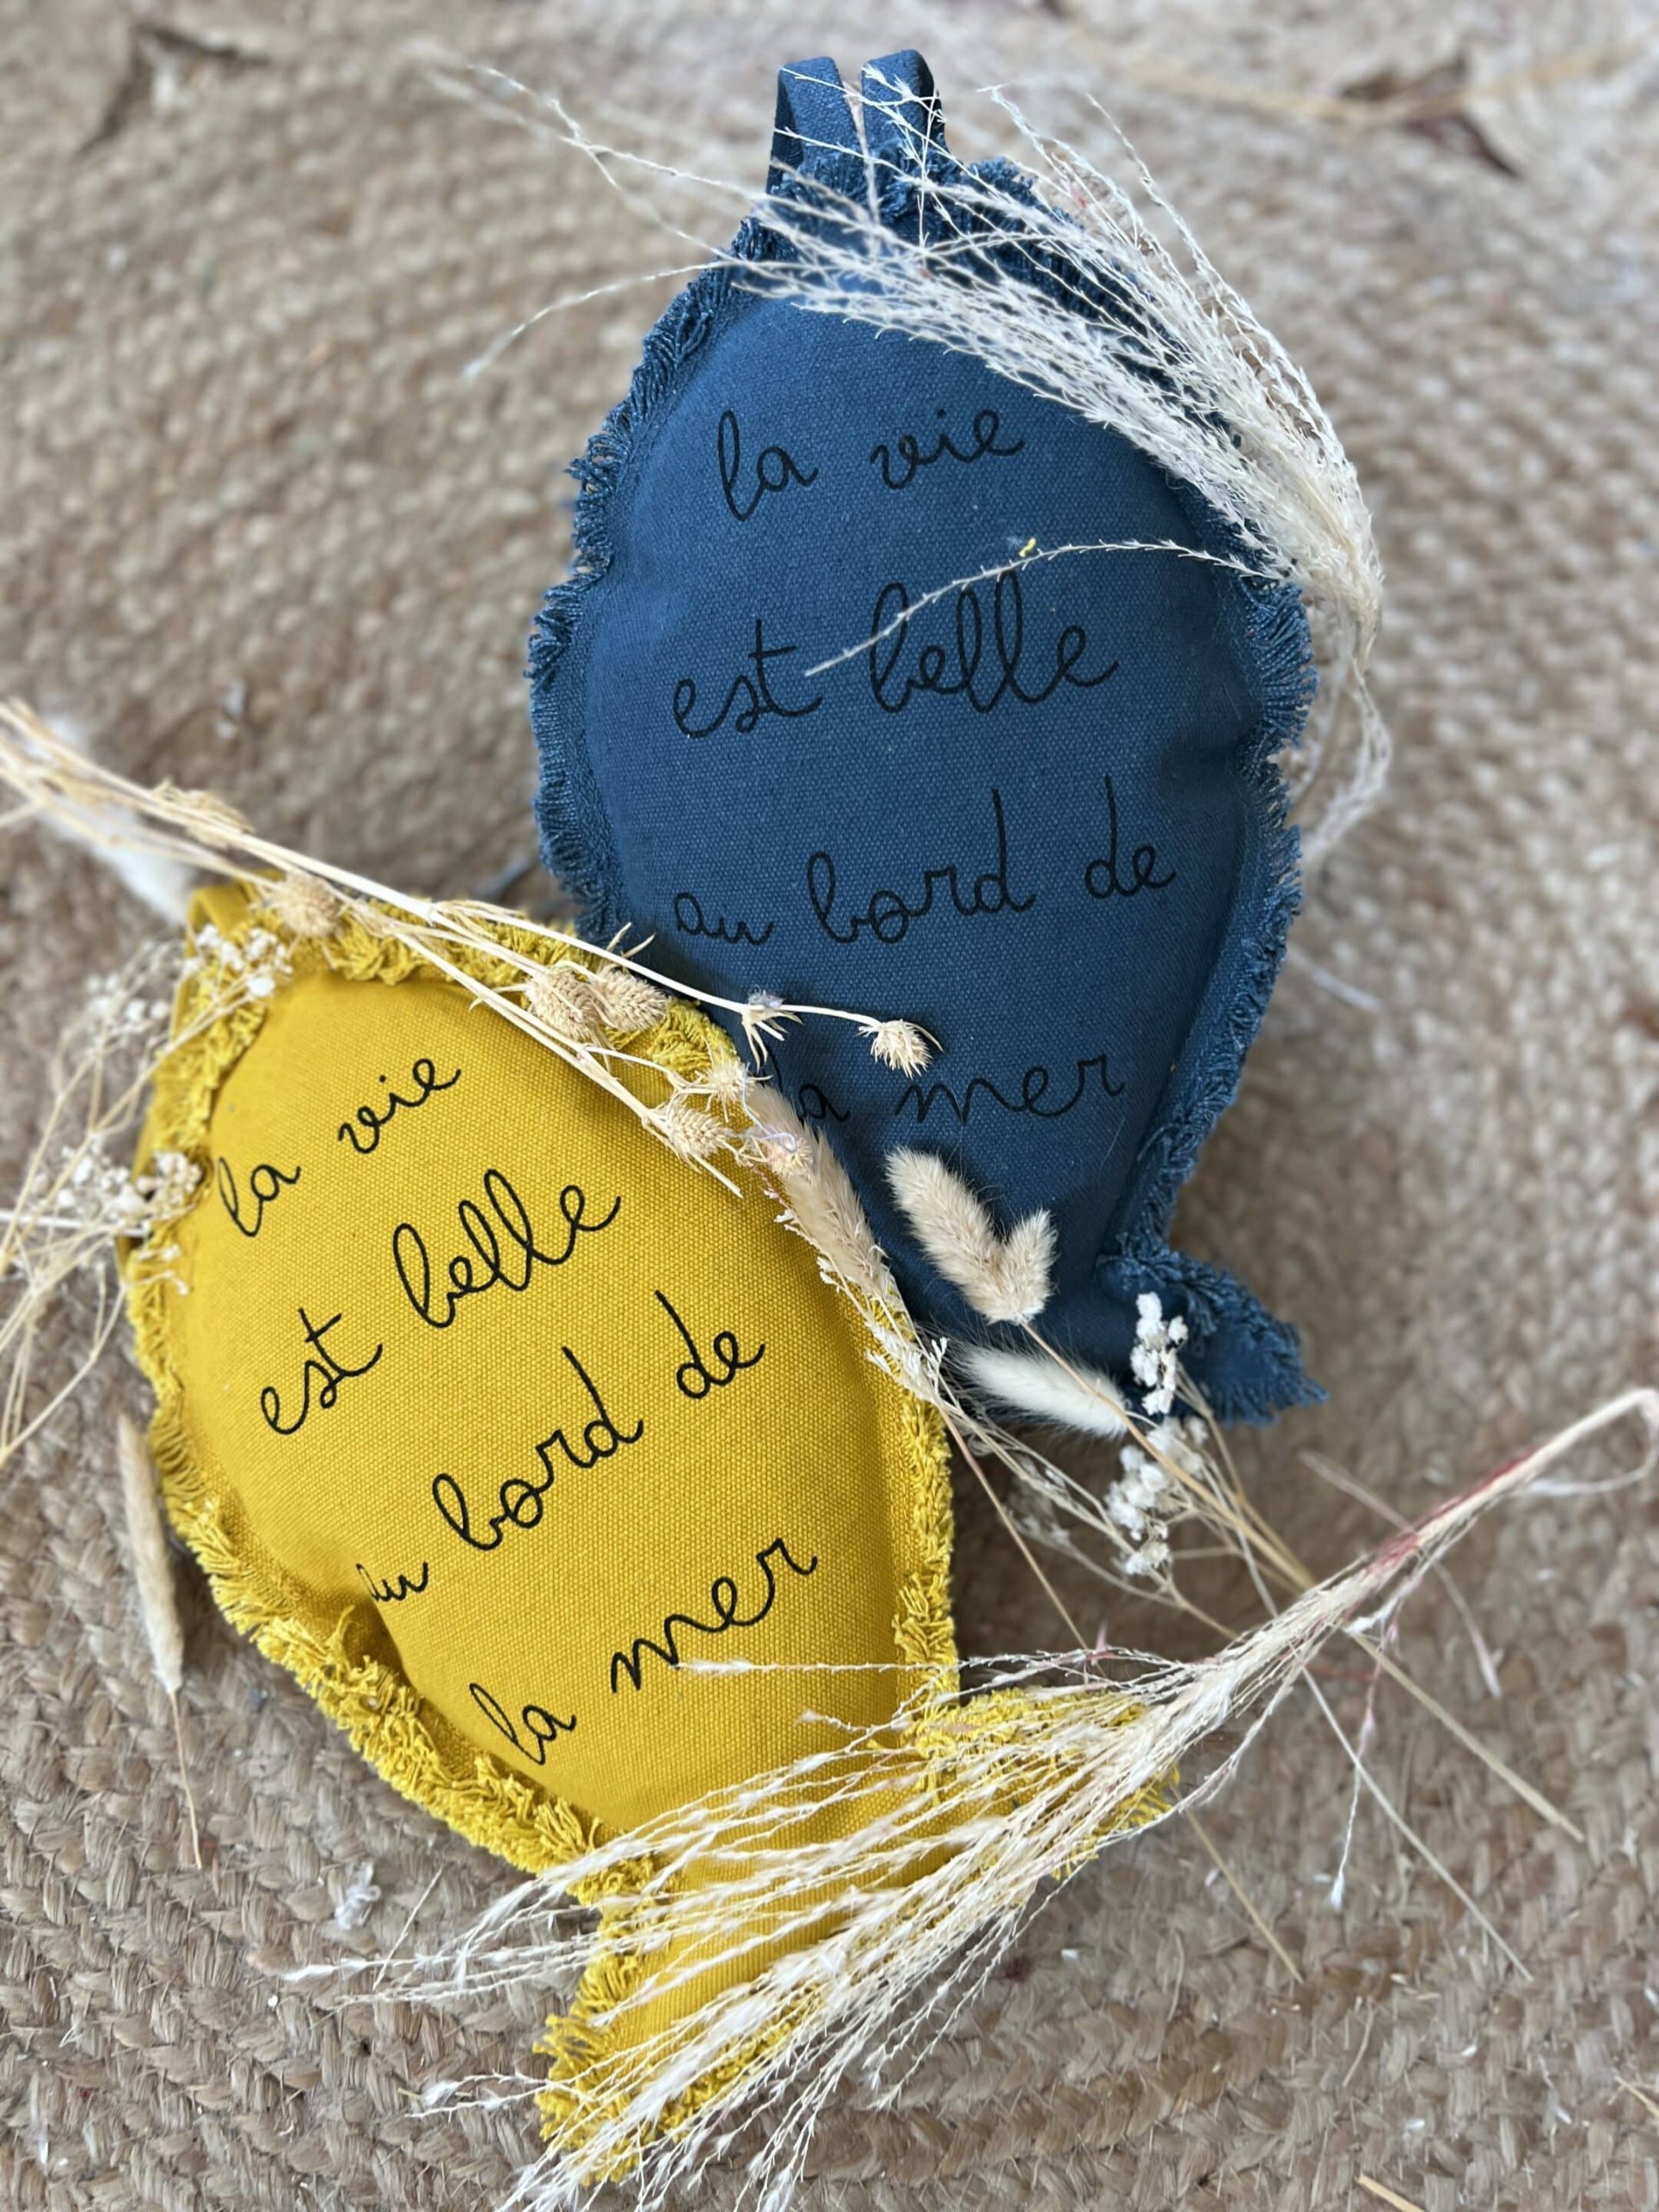 la vie
est belle
au bord de
la mer
la vie
est belle
au bord de
la mer